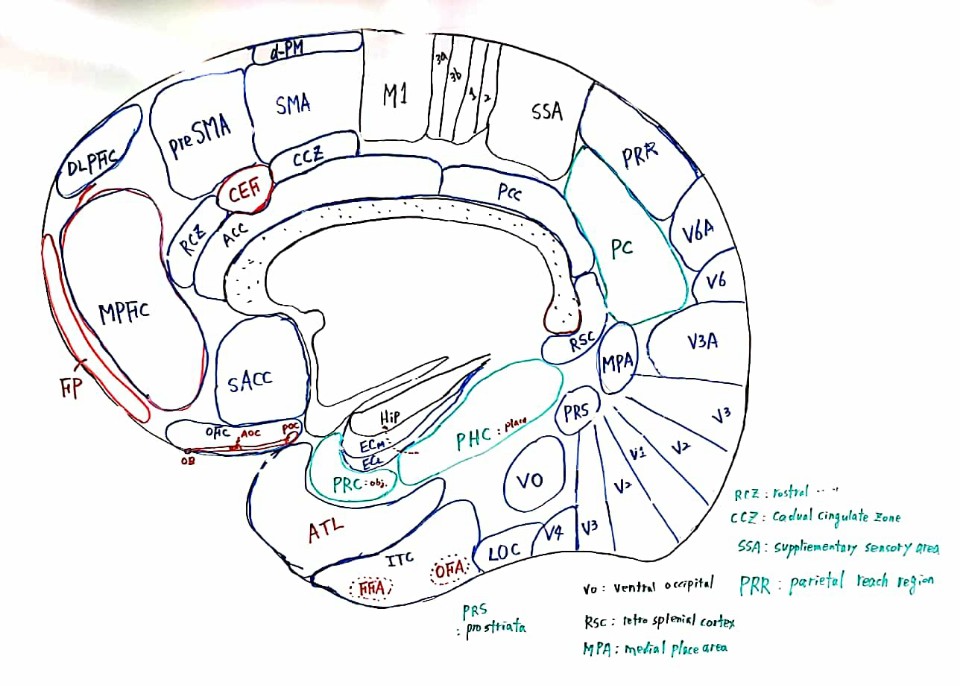 d-PM
DLPFiC
preSMA
SMA
M1
3a
3b
1
2
SSA
PRR
CCZ
CEFi
RCZ
ACC
PCC
PC
V6A
V6
MPFiC
FiP
sACC
RSC
MPA
V3A
V3
V2
V1
PRS
V2
V3
V4
OFiC
AOC
POC
OB
Hip
ECm
ECl
PRC : obj.
PHC : place
VO
ATL
ITC
LOC
FFA
OFA
RCZ : rostral ....
CCZ : Cadual Cingulate Zone
SSA : suppliementary sencory area
PRR : parietal reach region
VO : ventral occipital
PRS
: prostriata
RSC : retro splenial cortex
MPA : medial place area